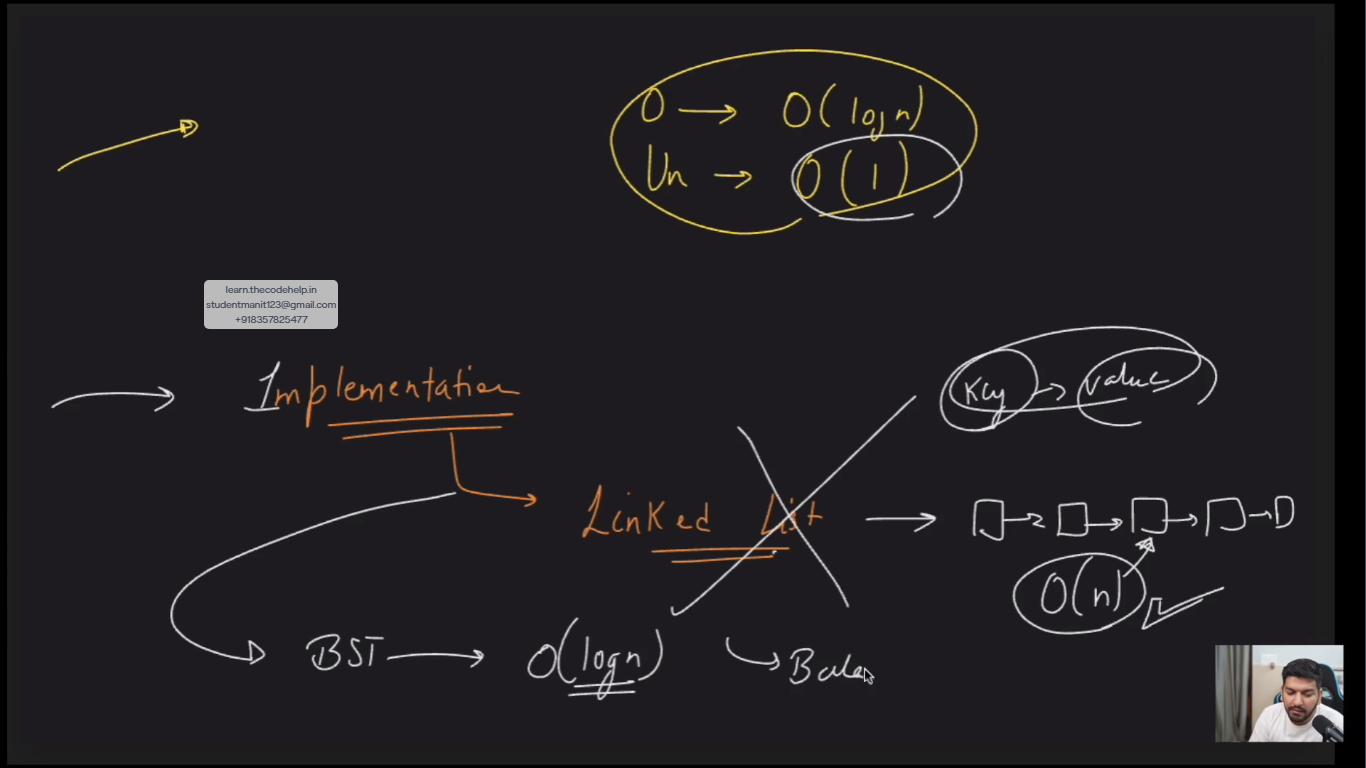 O → O(log n)
Un → O(1)
learn.thecodehelp.in
studentmanit123@gmail.com
+918357825477
Implementation
Key → value
Linked List →
O(n)
BST → O(log n)
Bala